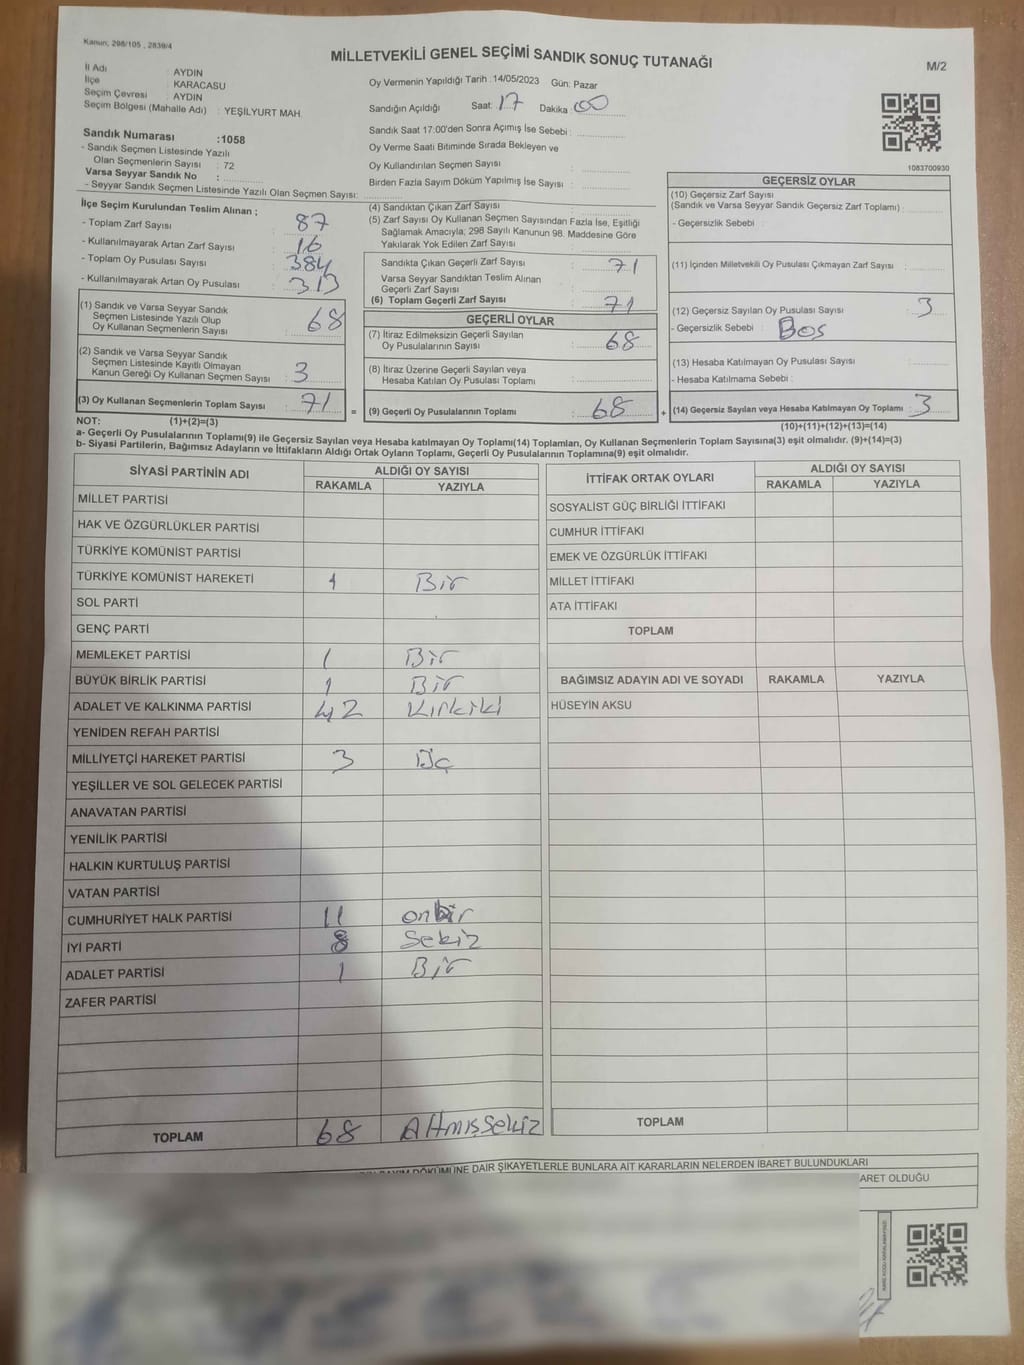 Kanun; 298/105 , 2839/4
MİLLETVEKİLİ GENEL SEÇİMİ SANDIK SONUÇ TUTANAĞI
M/2
İl Adı : AYDIN
İlçe : KARACASU
Seçim Çevresi : AYDIN
Seçim Bölgesi (Mahalle Adı) : YEŞİLYURT MAH.
Oy Vermenin Yapıldığı Tarih :14/05/2023 Gün: Pazar
Sandığın Açıldığı Saat: 17 Dakika: 00
Sandık Saat 17:00'den Sonra Açımış İse Sebebi :
Oy Verme Saati Bitiminde Sırada Bekleyen ve
Oy Kullandırılan Seçmen Sayısı :
Birden Fazla Sayım Döküm Yapılmış İse Sayısı :
1083700930
Sandık Numarası :1058
- Sandık Seçmen Listesinde Yazılı
Olan Seçmenlerin Sayısı : 72
Varsa Seyyar Sandık No :
- Seyyar Sandık Seçmen Listesinde Yazılı Olan Seçmen Sayısı:
İlçe Seçim Kurulundan Teslim Alınan ;
- Toplam Zarf Sayısı : 87
- Kullanılmayarak Artan Zarf Sayısı : 16
- Toplam Oy Pusulası Sayısı : 384
- Kullanılmayarak Artan Oy Pusulası : 313
(1) Sandık ve Varsa Seyyar Sandık
Seçmen Listesinde Yazılı Olup
Oy Kullanan Seçmenlerin Sayısı : 68
(2) Sandık ve Varsa Seyyar Sandık
Seçmen Listesinde Kayıtlı Olmayan
Kanun Gereği Oy Kullanan Seçmen Sayısı : 3
(3) Oy Kullanan Seçmenlerin Toplam Sayısı : 71
(1)+(2)=(3)
(4) Sandıktan Çıkan Zarf Sayısı :
(5) Zarf Sayısı Oy Kullanan Seçmen Sayısından Fazla İse, Eşitliği
Sağlamak Amacıyla; 298 Sayılı Kanunun 98. Maddesine Göre
Yakılarak Yok Edilen Zarf Sayısı :
Sandıkta Çıkan Geçerli Zarf Sayısı : 71
Varsa Seyyar Sandıktan Teslim Alınan
Geçerli Zarf Sayısı :
(6) Toplam Geçerli Zarf Sayısı : 71
GEÇERLİ OYLAR
(7) İtiraz Edilmeksizin Geçerli Sayılan
Oy Pusulalarının Sayısı : 68
(8) İtiraz Üzerine Geçerli Sayılan veya
Hesaba Katılan Oy Pusulası Toplamı :
= (9) Geçerli Oy Pusulalarının Toplamı : 68
GEÇERSİZ OYLAR
(10) Geçersiz Zarf Sayısı
(Sandık ve Varsa Seyyar Sandık Geçersiz Zarf Toplamı) :
- Geçersizlik Sebebi :
(11) İçinden Milletvekili Oy Pusulası Çıkmayan Zarf Sayısı :
(12) Geçersiz Sayılan Oy Pusulası Sayısı : 3
- Geçersizlik Sebebi : Boş
(13) Hesaba Katılmayan Oy Pusulası Sayısı :
- Hesaba Katılmama Sebebi :
+ (14) Geçersiz Sayılan veya Hesaba Katılmayan Oy Toplamı : 3
(10)+(11)+(12)+(13)=(14)
NOT:
a- Geçerli Oy Pusulalarının Toplamı(9) ile Geçersiz Sayılan veya Hesaba katılmayan Oy Toplamı(14) Toplamları, Oy Kullanan Seçmenlerin Toplam Sayısına(3) eşit olmalıdır. (9)+(14)=(3)
b- Siyasi Partilerin, Bağımsız Adayların ve İttifakların Aldığı Ortak Oyların Toplamı, Geçerli Oy Pusulalarının Toplamına(9) eşit olmalıdır.
SİYASİ PARTİNİN ADI
ALDIĞI OY SAYISI
RAKAMLA YAZIYLA
MİLLET PARTİSİ
HAK VE ÖZGÜRLÜKLER PARTİSİ
TÜRKİYE KOMÜNİST PARTİSİ
TÜRKİYE KOMÜNİST HAREKETİ 1 Bir
SOL PARTİ
GENÇ PARTİ
MEMLEKET PARTİSİ 1 Bir
BÜYÜK BİRLİK PARTİSİ 1 Bir
ADALET VE KALKINMA PARTİSİ 42 Kırkiki
YENİDEN REFAH PARTİSİ
MİLLİYETÇİ HAREKET PARTİSİ 3 Üç
YEŞİLLER VE SOL GELECEK PARTİSİ
ANAVATAN PARTİSİ
YENİLİK PARTİSİ
HALKIN KURTULUŞ PARTİSİ
VATAN PARTİSİ
CUMHURİYET HALK PARTİSİ 11 onbir
İYİ PARTİ 8 Sekiz
ADALET PARTİSİ 1 Bir
ZAFER PARTİSİ
TOPLAM 68 Altmışsekiz
İTTİFAK ORTAK OYLARI
ALDIĞI OY SAYISI
RAKAMLA YAZIYLA
SOSYALİST GÜÇ BİRLİĞİ İTTİFAKI
CUMHUR İTTİFAKI
EMEK VE ÖZGÜRLÜK İTTİFAKI
MİLLET İTTİFAKI
ATA İTTİFAKI
TOPLAM
BAĞIMSIZ ADAYIN ADI VE SOYADI RAKAMLA YAZIYLA
HÜSEYİN AKSU
TOPLAM
DÖKÜMÜNE DAİR ŞİKAYETLERLE BUNLARA AİT KARARLARIN NELERDEN İBARET BULUNDUKLARI
ARET OLDUĞU